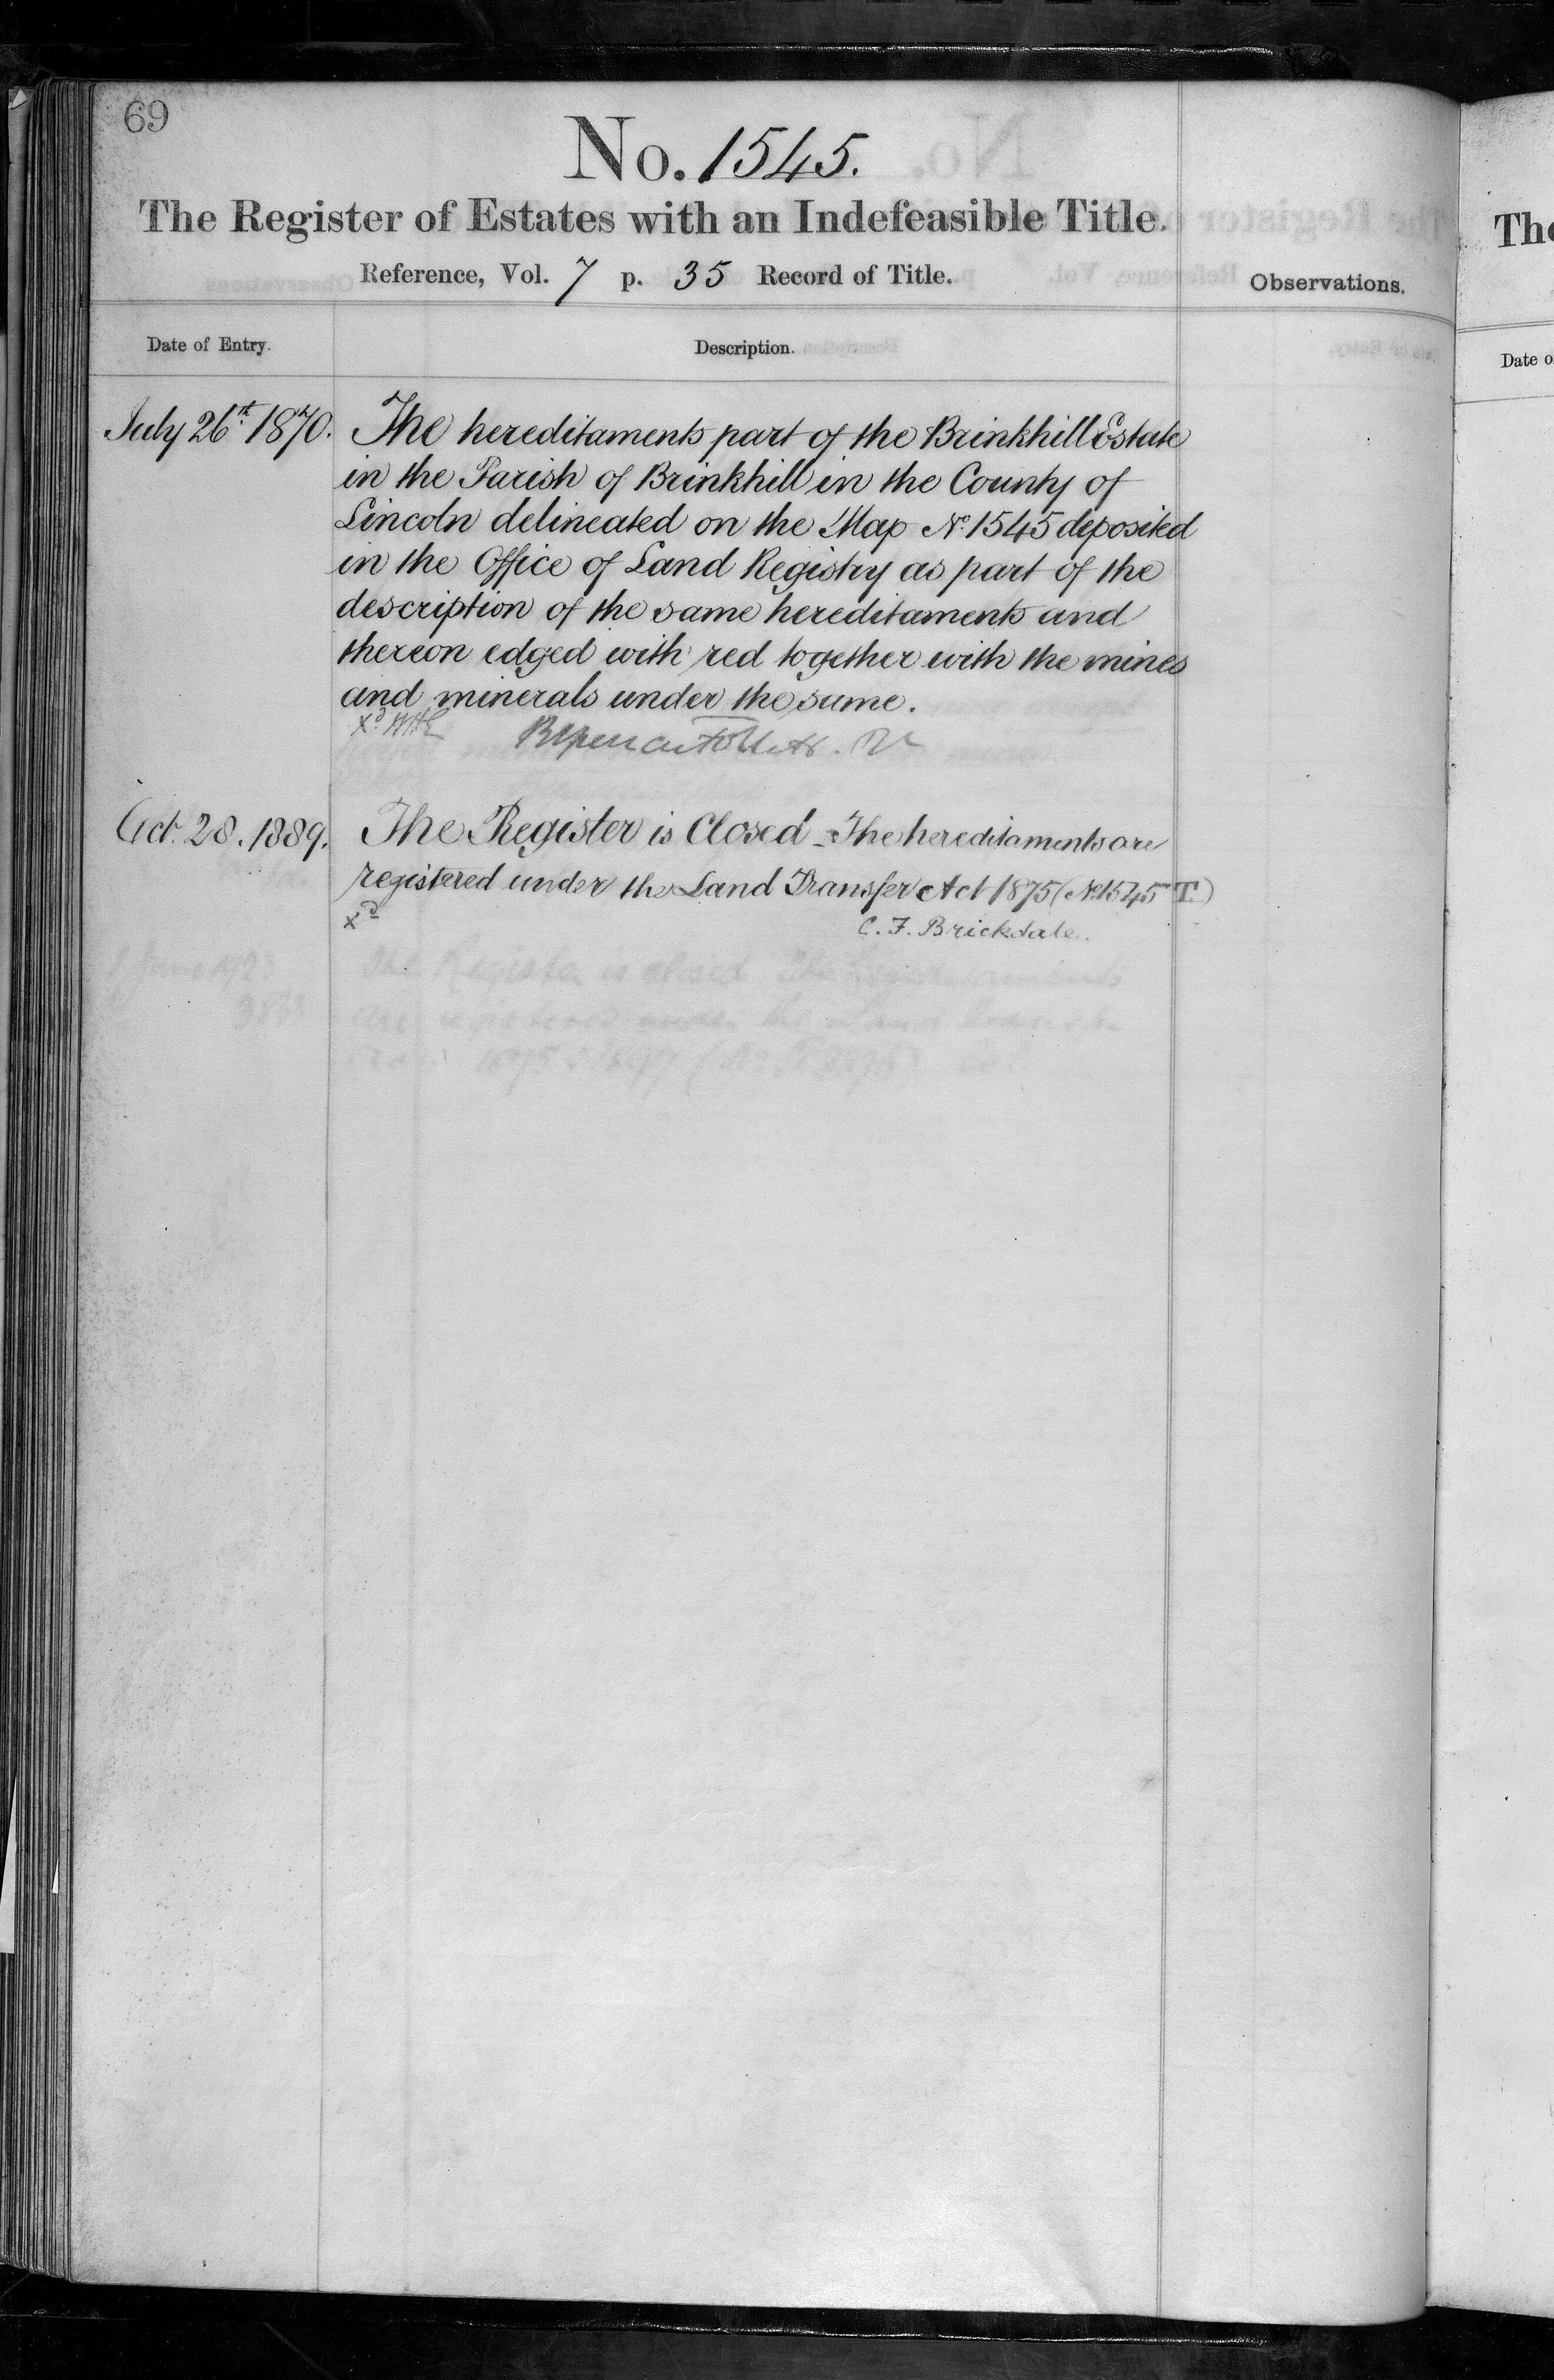 69
No. 1545.
The Register of Estates with an Indefeasible Title.
Reference, Vol. 7 p. 35 Record of Title.
Observations.
Date of Entry.
Description.
July 26th 1870.
The hereditaments part of the Brinkhill Estate
in the Parish of Brinkhill in the County of
Lincoln delineated on the Map No. 1545 deposited
in the Office of Land Registry as part of the
description of the same hereditaments and
thereon edged with red together with the mines
and minerals under the same.
Oct. 28. 1889.
The Register is Closed - The hereditaments are
registered under the Land Transfer Act 1875 (No. 1545 T.)
xd
C. F. Brickdale.
The
Date o